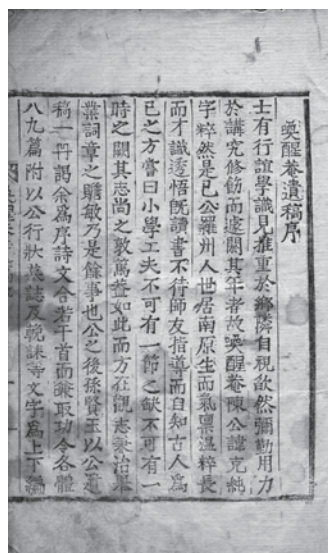 喚醒菴遺稿序
士有行誼學識見推重於鄕隣自視欿然彌勤用力
於講究修飭而遽閼其年者故喚醒菴陳公諱克純
字粹然是已公羅州人世居南原生而氣稟溫粹長
而才識透悟旣讀書不待師友指導而自知古人爲
己之方嘗曰小學工夫不可有一節之缺不可有一
時之闕其志尚之敦篤蓋如此而方在觀志兼治擧
業詞章之贍敏乃是餘事也公之後孫賢玉以公遺
稿一冊謁余爲序詩文合若干首而兼取功令各體
八九篇附以公行狀墓誌及輓誄等文字爲上下編